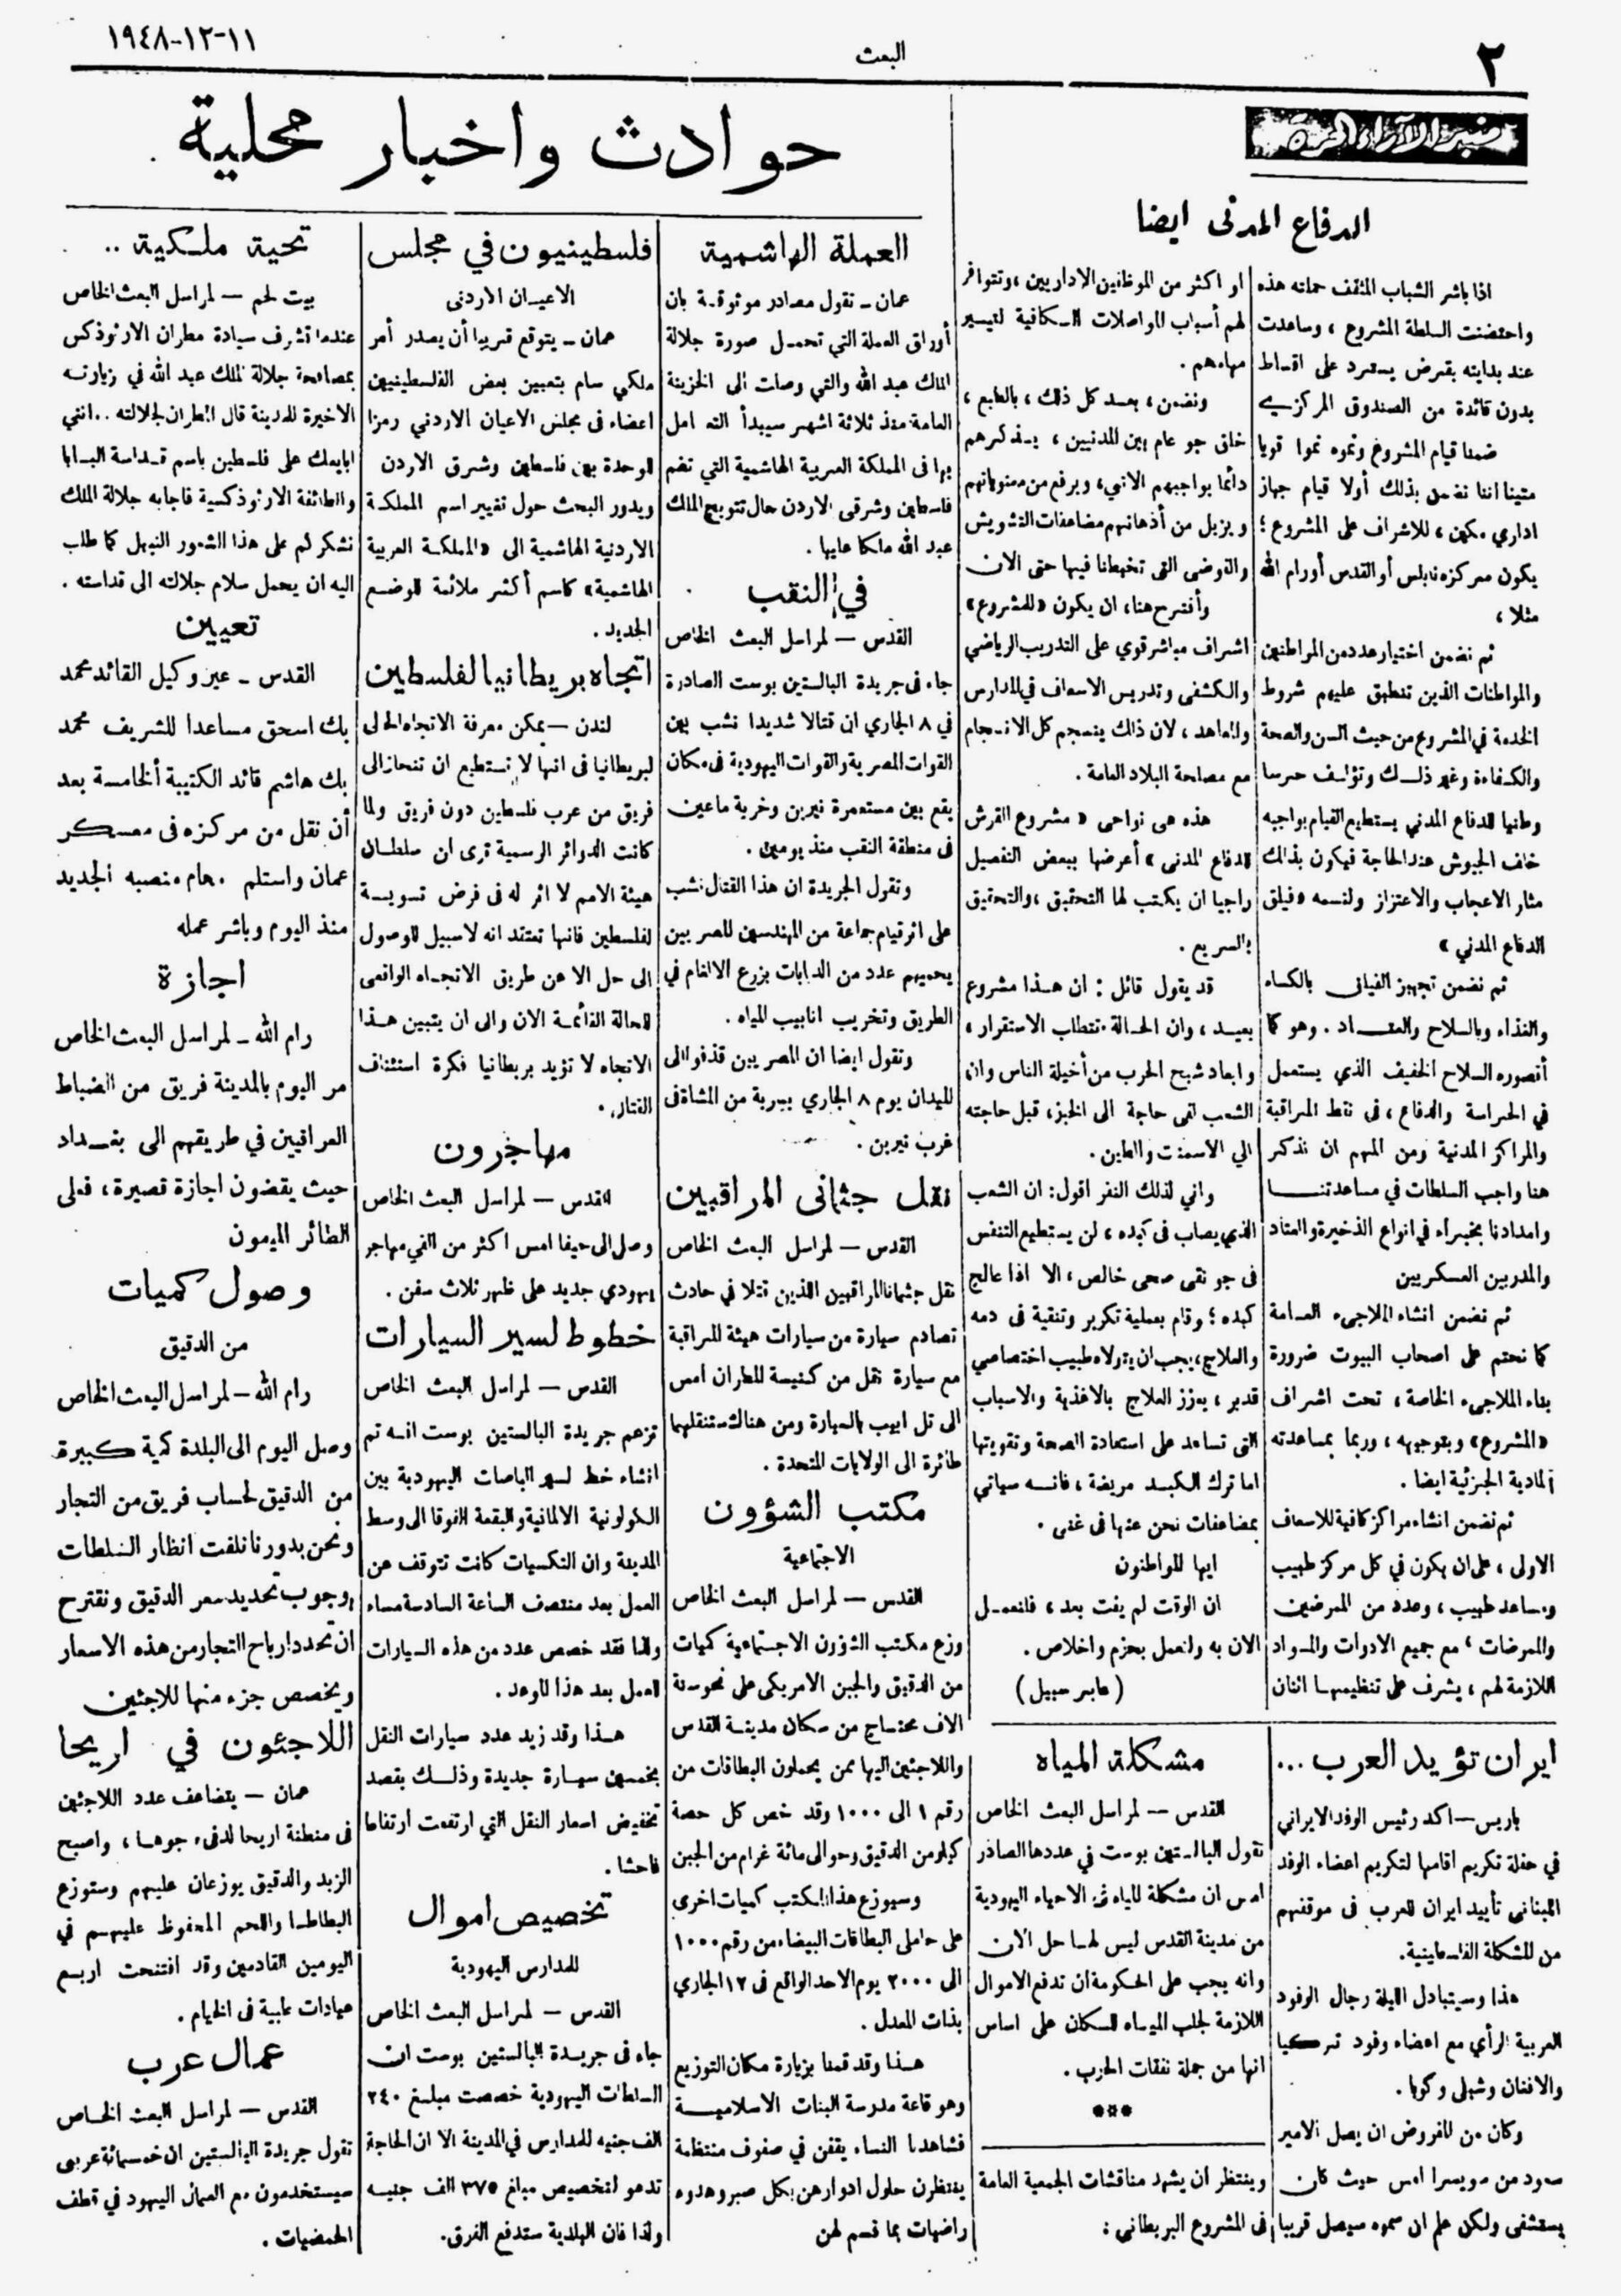 ٢
البعث
١١-١٢-١٩٤٨
منبر الآراء الحرة
الدفاع المدنى ايضا
اذا باشر الشباب المثقف حملته هذه
واحتضنت السلطة المشروع ، وساعدت
عند بدايته بقرض يسترد على اقساط
بدون فائدة من الصندوق المركزي
ضمنا قيام المشروع ونموه نموا قويا
متينا اننا نضمن بذلك أولا قيام جهاز
اداري مكين ، للاشراف على المشروع ؛
يكون مركزه نابلس أو القدس أو رام الله
مثلا ،
ثم نضمن اختيار عدد من المواطنين
والمواطنات الذين تنطبق عليهم شروط
الخدمة في المشروع من حيث السن والصحة
والكفاءة وغير ذلك وتؤلف حرسا
وطنيا للدفاع المدني يستطيع القيام بواجبه
خلف الجيوش عند الحاجة فيكون بذلك
مثار الاعجاب والاعتزاز ولنسمه «فيلق
الدفاع المدني»
ثم نضمن تجهيز الفيلق بالكساء
والغذاء وبالسلاح والعتاد . وهو كما
أتصوره السلاح الخفيف الذي يستعمل
في الحراسة والدفاع ، فى نقط المراقبة
والمراكز المدنية ومن المهم ان نذكر
هنا واجب السلطات في مساعدتنا
وامدادنا بخبراء في انواع الذخيرة والعتاد
والمدربين العسكريين
ثم نضمن انشاء الملاجىء العامة
كما نحتم على اصحاب البيوت ضرورة
بناء الملاجىء الخاصة ، تحت اشراف
«المشروع» وبتوجيهه ، وربما بمساعدته
المادية الجزئية ايضا .
ثم نضمن انشاء مراكز كافية للاسعاف
الاولى ، على ان يكون في كل مركز طبيب
ومساعد طبيب ، وعدد من الممرضين
والممرضات ، مع جميع الادوات والمواد
اللازمة لهم ، يشرف على تنظيمها اثنان
او اكثر من الموظفين الاداريين ، وتتوافر
لهم أسباب المواصلات الكافية لتيسير
مهامهم .
ونضمن ، بعد كل ذلك ، بالطبع ،
خلق جو عام بين المدنيين ، يذكرهم
دائما بواجبهم الاتي ، ويرفع من معنوياتهم
ويزيل من أذهانهم مضاعفات التشويش
والفوضى التى تخبطنا فيها حتى الان
وأقترح هنا ، ان يكون «للمشروع»
اشراف مباشر قوي على التدريب الرياضي
والكشفى وتدريس الاسعاف في المدارس
والمعاهد ، لان ذلك ينسجم كل الانسجام
مع مصلحة البلاد العامة .
هذه هى نواحى «مشروع القرش
للدفاع المدنى» أعرضها ببعض التفصيل
راجيا ان يكتب لها التحقيق ، والتحقيق
السريع .
قد يقول قائل : ان هذا مشروع
بعيد ، وان الحالة تتطلب الاستقرار ،
وابعاد شبح الحرب من أخيلة الناس وان
الشعب لفى حاجة الى الخبز ، قبل حاجته
الي الاسمنت والطين .
واني لذلك النفر اقول : ان الشعب
الذي يصاب فى كبده ، لن يستطيع التنفس
فى جو نقى صحى خالص ، الا اذا عالج
كبده ؛ وقام بعملية تكرير وتنقية فى دمه
والعلاج ، يجب ان يتولاه طبيب اختصاصي
قدير ، يعزز العلاج بالاغذية والاسباب
التى تساعد على استعادة الصحة وتقويتها
اما ترك الكبد مريضة ، فانه سيأتي
بمضاعفات نحن عنها فى غنى .
ايها المواطنون
ان الوقت لم يفت بعد ، فلنعمل
الان به ولنعمل بحزم واخلاص .
(عابر سبيل)
ايران تؤيد العرب ...
باريس — اكد رئيس الوفد الايراني
في حفلة تكريم اقامها لتكريم اعضاء الوفد
اللبنانى تأييد ايران للعرب فى موقفهم
من المشكلة الفلسطينية.
هذا وسيتبادل الليلة رجال الوفود
العربية الرأي مع اعضاء وفود تركيا
والافغان وشيلى وكوبا .
وكان من المفروض ان يصل الامير
سعود من سويسرا امس حيث كان
يستشفى ولكن علم ان سموه سيصل قريبا
مشكلة المياه
القدس — لمراسل البعث الخاص
تقول البالستين بوست في عددها الصادر
امس ان مشكلة المياه فى الاحياء اليهودية
من مدينة القدس ليس لها حل الان
وانه يجب على الحكومة ان تدفع الاموال
اللازمة لجلب المياه للسكان على اساس
انها من جملة نفقات الحرب .
***
وينتظر ان يشهد مناقشات الجمعية العامة
فى المشروع البريطانى :
حوادث واخبار محلية
العملة الهاشمية
عمان – تقول مصادر موثوقة بان
أوراق العملة التي تحمل صورة جلالة
الملك عبد الله والتي وصلت الى الخزينة
العامة منذ ثلاثة اشهر سيبدأ التعامل
بها فى المملكة العربية الهاشمية التي تضم
فلسطين وشرقى الاردن حال تتويج الملك
عبد الله ملكا عليها .
في النقب
القدس — لمراسل البعث الخاص
جاء فى جريدة البالستين بوست الصادرة
في ٨ الجاري ان قتالا شديدا نشب بين
القوات المصرية والقوات اليهودية فى مكان
يقع بين مستعمرة نيرين وخربة ماعين
فى منطقة النقب منذ يومين .
وتقول الجريدة ان هذا القتال نشب
على اثر قيام جماعة من المهندسين المصريين
يحميهم عدد من الدبابات بزرع الالغام في
الطريق وتخريب انابيب المياه .
وتقول ايضا ان المصريين قذفوا الى
الميدان يوم ٨ الجاري بسرية من المشاة فى
غرب نيرين .
نقل جثمانى المراقبين
القدس — لمراسل البعث الخاص
نقل جثمانا المراقبين اللذين قتلا في حادث
تصادم سيارة من سيارات هيئة المراقبة
مع سيارة نقل من كنيسة المطران امس
الى تل ابيب بالسيارة ومن هناك ستنقلهما
طائرة الى الولايات المتحدة .
مكتب الشؤون
الاجتماعية
القدس — لمراسل البعث الخاص
وزع مكتب الشؤون الاجتماعية كميات
من الدقيق والجبن الامريكى على نحو ستة
الاف محتاج من سكان مدينة القدس
واللاجئين اليها ممن يحملون البطاقات من
رقم ١ الى ١٠٠٠ وقد خص كل حصة
كيلو من الدقيق وحوالى مائة غرام من الجبن
وسيوزع هذا المكتب كميات اخرى
على حاملى البطاقات البيضاء من رقم ١٠٠٠
الى ٢٠٠٠ يوم الاحد الواقع فى ١٢ الجاري
بذات المعدل .
هذا وقد قمنا بزيارة مكان التوزيع
وهو قاعة مدرسة البنات الاسلامية
فشاهدنا النساء يقفن في صفوف منتظمة
ينتظرن حلول ادوارهن بكل صبر وهدوء
راضيات بما قسم لهن
فلسطينيون في مجلس
الاعيان الاردنى
عمان – يتوقع قريبا أن يصدر أمر
ملكي سام بتعيين بعض الفلسطينيين
اعضاء فى مجلس الاعيان الاردني رمزا
للوحدة بين فلسطين وشرق الاردن
ويدور البحث حول تغيير اسم المملكة
الاردنية الهاشمية الى «المملكة العربية
الهاشمية» كاسم أكثر ملائمة للوضع
الجديد .
اتجاه بريطانيا لفلسطين
لندن – يمكن معرفة الاتجاه الحالى
لبريطانيا فى انها لا تستطيع ان تنحاز الى
فريق من عرب فلسطين دون فريق ولما
كانت الدوائر الرسمية ترى ان سلطان
هيئة الامم لا اثر له فى فرض تسوية
لفلسطين فانها تعتقد انه لا سبيل للوصول
الى حل الا عن طريق الاتجاه الواقعى
للحالة القائمة الان والى ان يتبين هذا
الاتجاه لا تؤيد بريطانيا فكرة استئناف
القتال .
مهاجرون
القدس — لمراسل البعث الخاص
وصل الى حيفا امس اكثر من الفي مهاجر
يهودي جديد على ظهر ثلاث سفن .
خطوط لسير السيارات
القدس — لمراسل البعث الخاص
تزعم جريدة البالستين بوست انه تم
انشاء خط لسير الباصات اليهودية بين
الكولونية الالمانية والبقعة الفوقا الى وسط
المدينة وان التكسيات كانت تتوقف عن
العمل بعد منتصف الساعة السادسة مساء
ولذا فقد خصص عدد من هذه السيارات
للعمل بعد هذا الموعد .
هذا وقد زيد عدد سيارات النقل
بخمسين سيارة جديدة وذلك بقصد
تخفيض اسعار النقل التي ارتفعت ارتفاعا
فاحشا .
تخصيص اموال
للمدارس اليهودية
القدس — لمراسل البعث الخاص
جاء فى جريدة البالستين بوست ان
السلطات اليهودية خصصت مبلغ ٢٤٠
الف جنيه للمدارس في المدينة الا ان الحاجة
تدعو لتخصيص مبلغ ٣٧٥ الف جنيه
ولذا فان البلدية ستدفع الفرق.
تحية ملكية ..
بيت لحم — لمراسل البعث الخاص
عندما تشرف سيادة مطران الارثوذكس
بمصافحة جلالة الملك عبد الله في زيارته
الاخيرة للمدينة قال المطران لجلالته .. انني
ابايعك على فلسطين باسم قداسة البابا
والطائفة الارثوذكسية فاجابه جلالة الملك
نشكر لم على هذا الشعور النبيل كما طلب
اليه ان يحمل سلام جلالته الى قداسته .
تعيين
القدس – عين وكيل القائد محمد
بك اسحق مساعدا للشريف محمد
بك هاشم قائد الكتيبة الخامسة بعد
أن نقل من مركزه فى معسكر
عمان واستلم مهام منصبه الجديد
منذ اليوم وباشر عمله
اجازة
رام الله – لمراسل البعث الخاص
مر اليوم بالمدينة فريق من الضباط
العراقيين في طريقهم الى بغداد
حيث يقضون اجازة قصيرة ، فعلى
الطائر الميمون
وصول كميات
من الدقيق
رام الله – لمراسل البعث الخاص
وصل اليوم الى البلدة كمية كبيرة
من الدقيق لحساب فريق من التجار
ونحن بدورنا نلفت انظار السلطات
لوجوب تحديد سعر الدقيق ونقترح
ان تحدد ارباح التجار من هذه الاسعار
ويخصص جزء منها للاجئين
اللاجئون في اريحا
عمان — يتضاعف عدد اللاجئين
فى منطقة اريحا لدفىء جوها ، واصبح
الزبد والدقيق يوزعان عليهم وستوزع
البطاطا واللحم المحفوظ عليهم في
اليومين القادمين وقد افتتحت اربع
عيادات طبية فى الخيام .
عمال عرب
القدس — لمراسل البعث الخاص
تقول جريدة البالستين ان خمسمائة عربى
سيستخدمون مع العمال اليهود في قطف
الحمضيات .